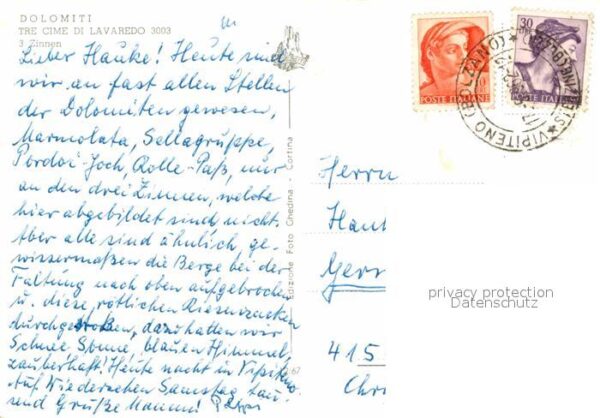 DOLOMITI
TRE CIME DI LAVAREDO 3003
3 Zinnen
Lieber Hauke! Heute sind
wir an fast allen Stellen
der Dolomiten gewesen,
Marmolata, Sellagruppe,
Pordoi-Joch, Rolle-Paß, nur
an den drei Zinnen, welche
hier abgebildet sind, nicht.
Aber alle sind ähnlich, ge-
wissermaßen die Berge bei der
Faltung nach oben aufgebrochen
u. diese rötlichen Riesenzacken
durchgestoßen, dazu hatten wir
Schnee Sonne, blauen Himmel,
zauberhaft! Heute nacht in Vipiteno
Auf Wiedersehen Samstag, tau-
send Grüße Mammi!
Edizione Foto Ghedina - Cortina
67
POSTE ITALIANE
30
POSTE ITALIANE
VIPITENO (BOLZANO)
Herrn
Hau
Gerr
415
Chr
privacy protection
Datenschutz